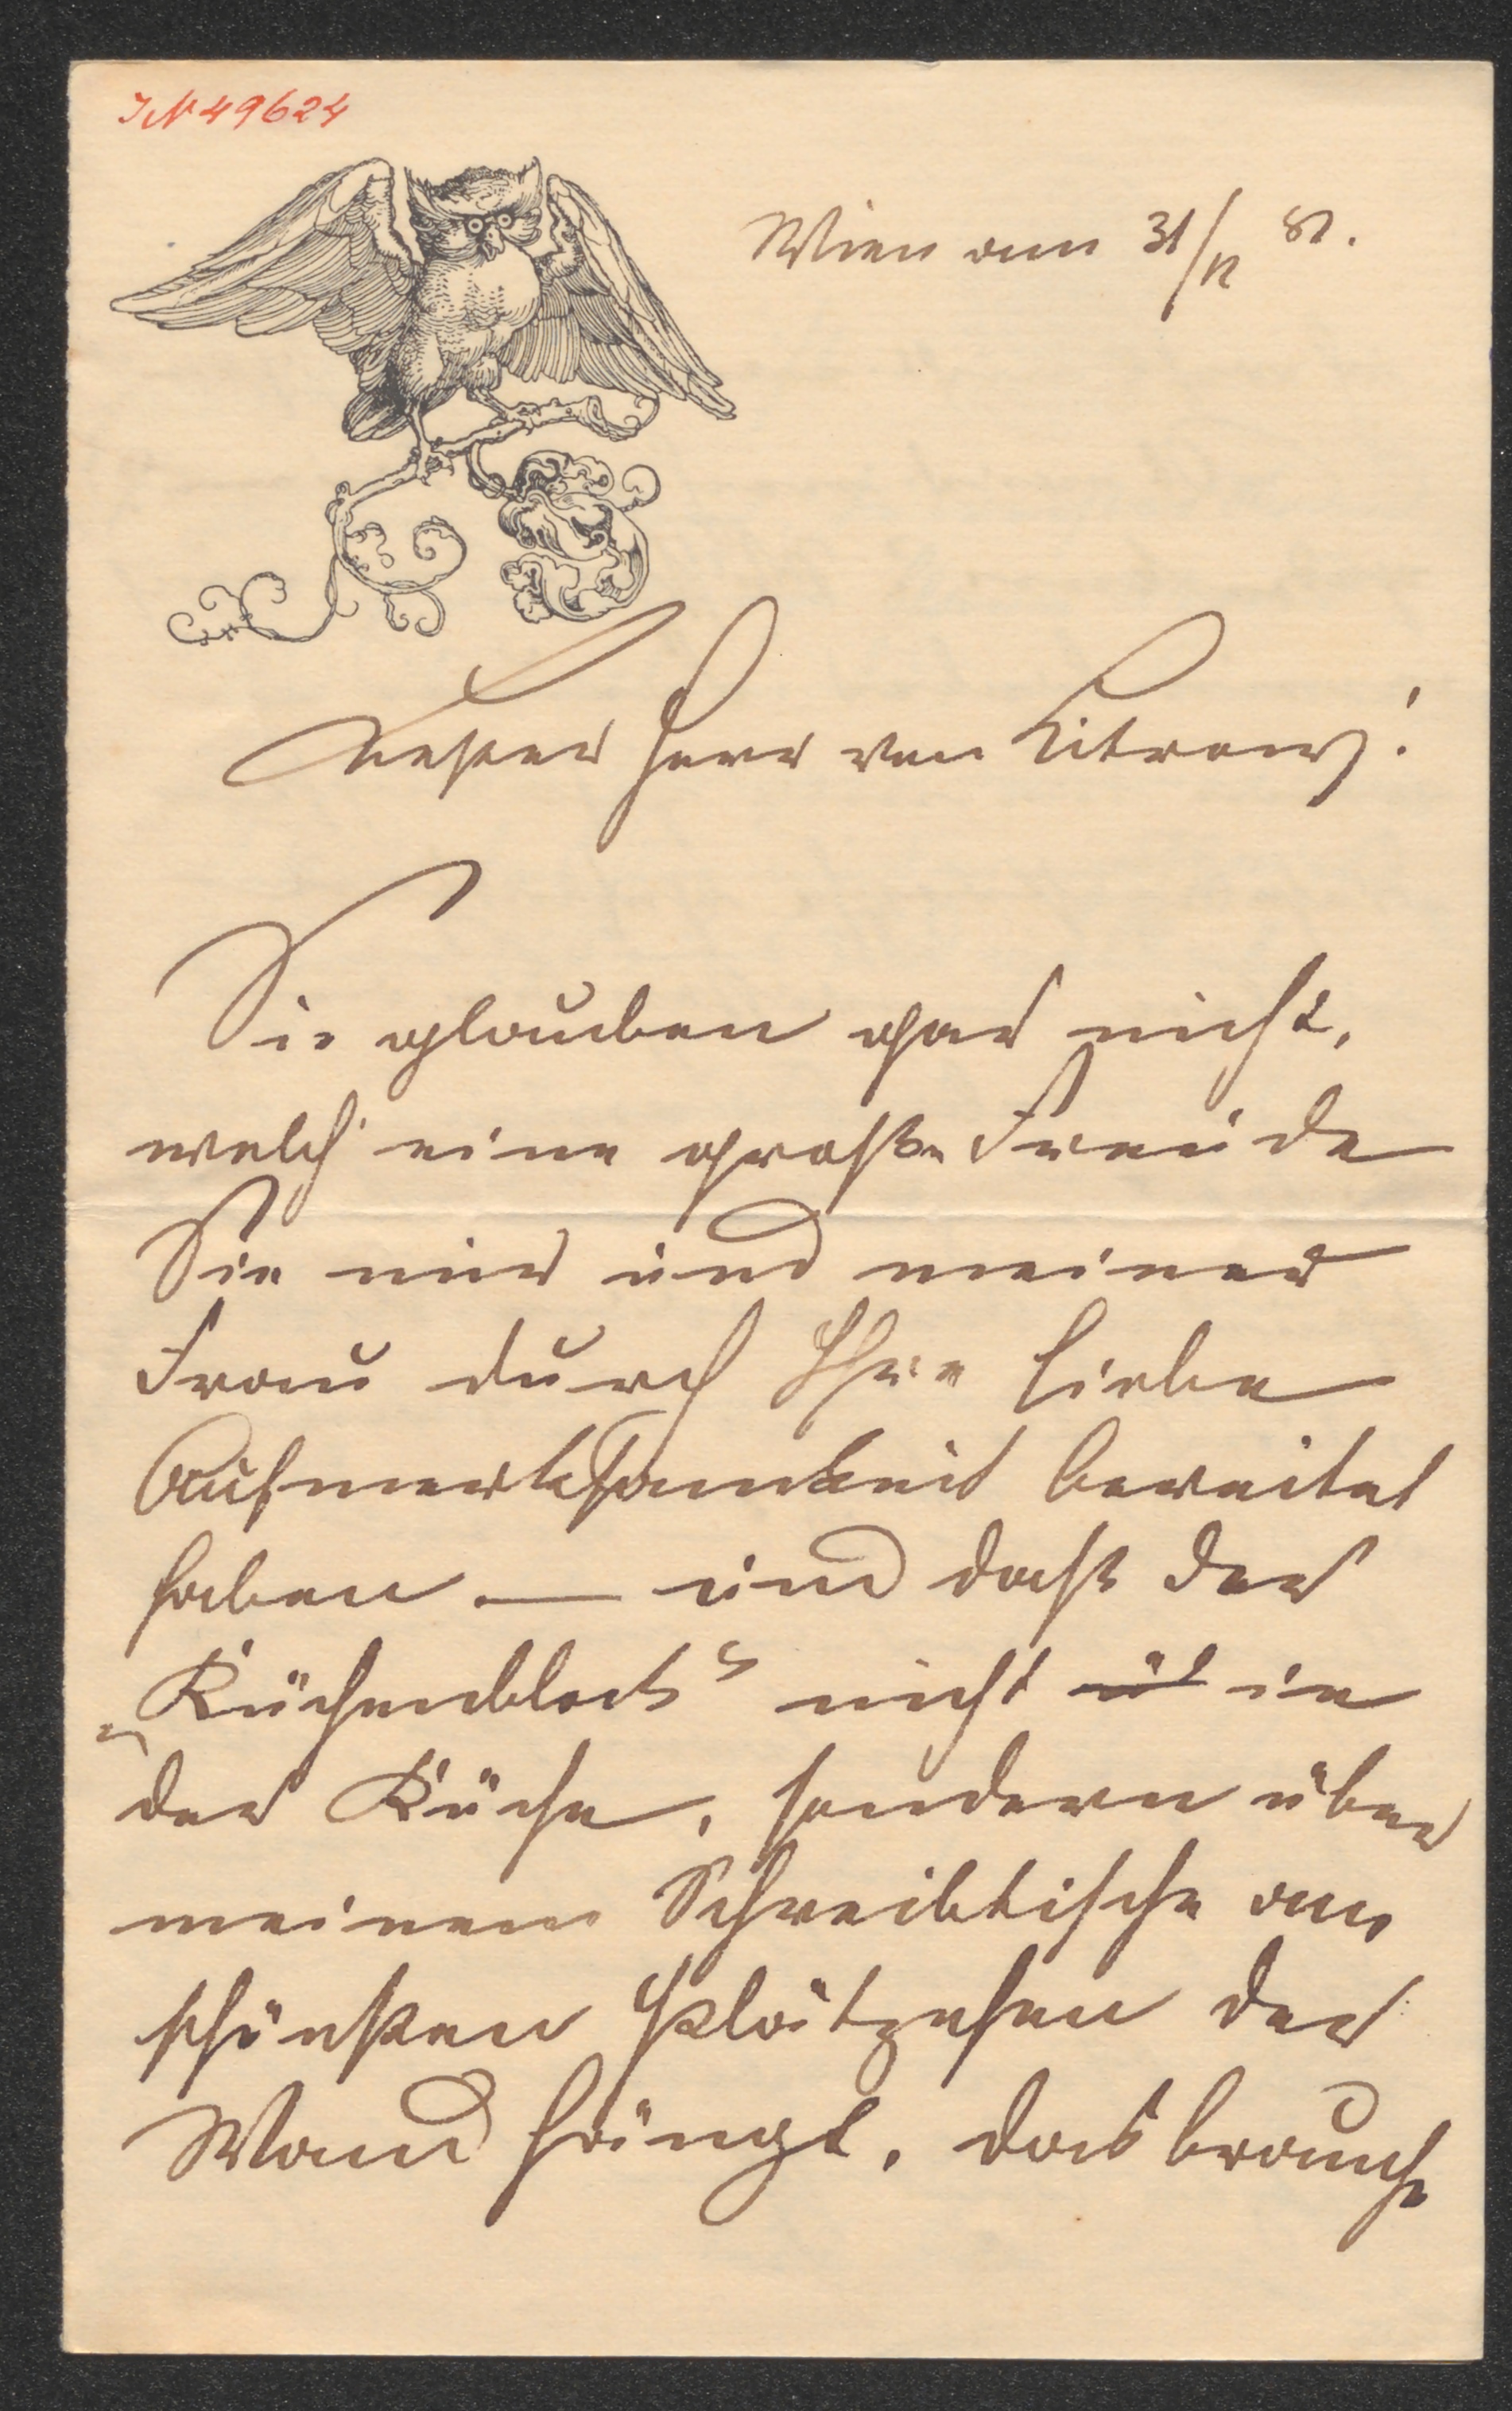 IN 49624
Wien am 31/12 81.
Bester Herr von Littrow!
Sie glauben gar nicht,
welch' eine große Freude
Sie mir und meiner
Frau durch Ihre liebe
Aufmerksamkeit bereitet
haben — und daß der
„Küchenblock“ nicht üb in
der Küche, sondern über
meinem Schreibtische am
schönsten Plätzchen der
Wand hängt, das brauche